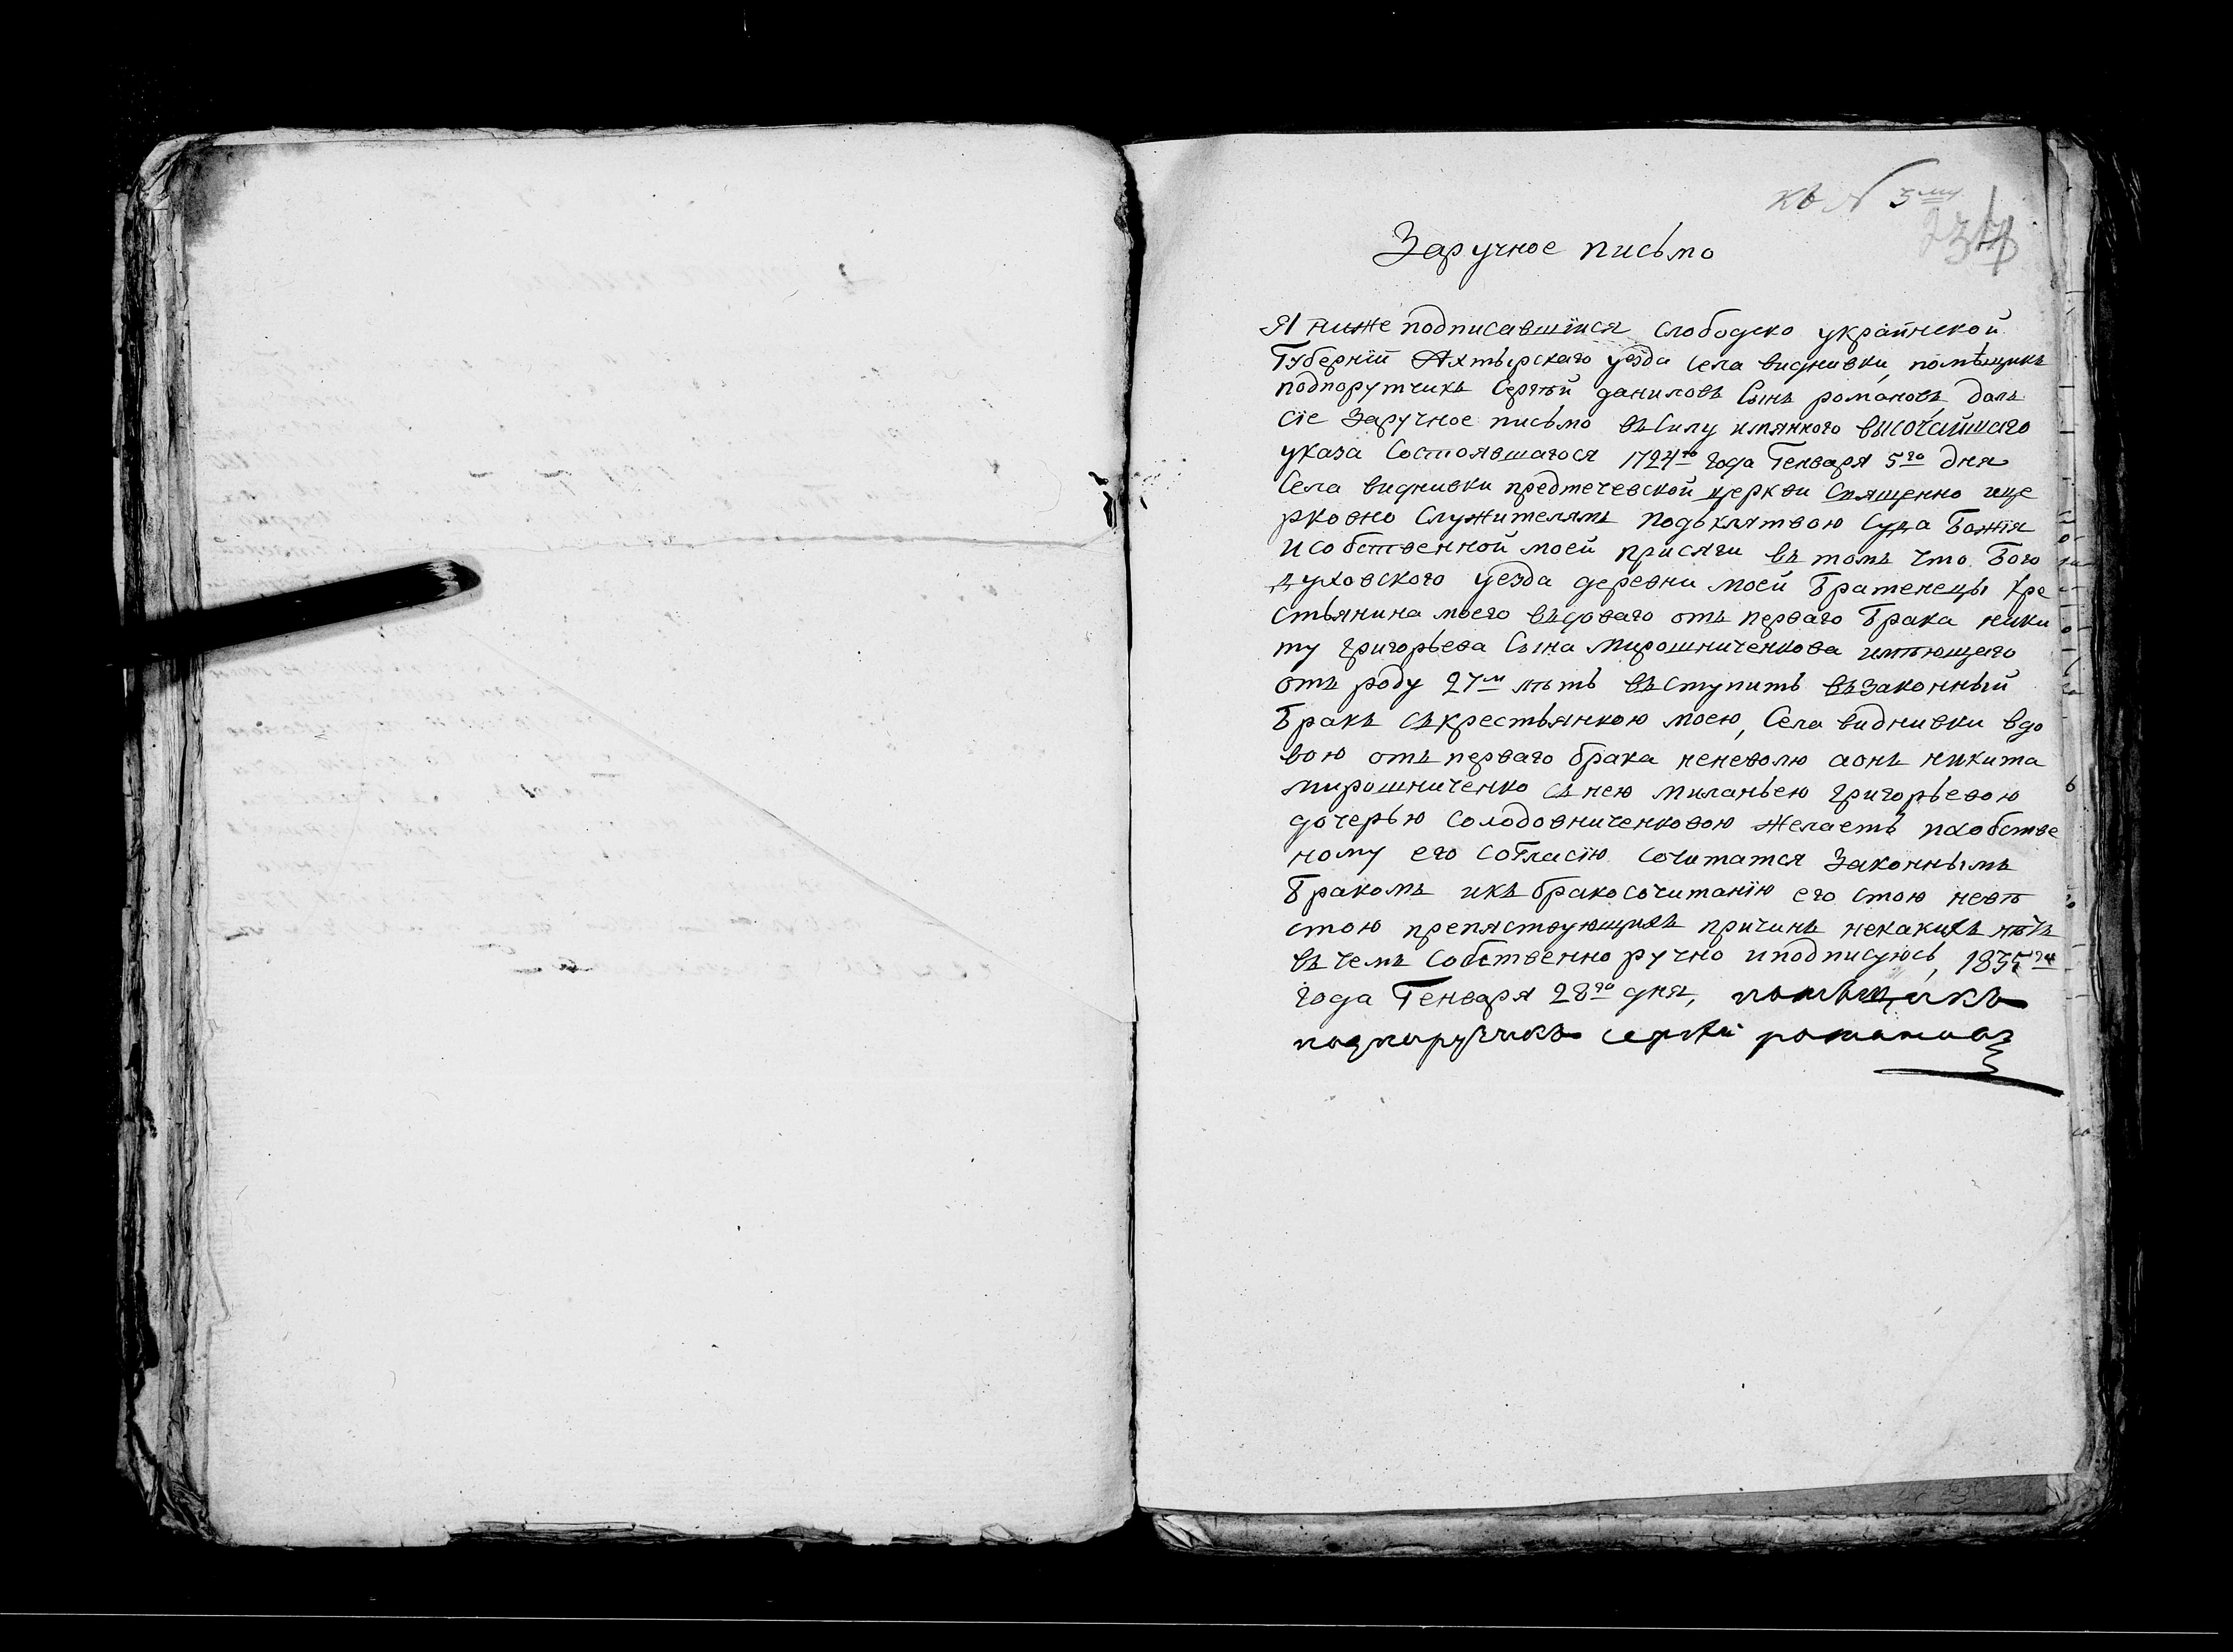 къ N 5му
Заручное письмо
Я ниже подписавшїися слободско украинской
Губернїи Ахтырскаго уезда села виднивки, помѣщикъ
подпорутчикъ Сергѣй даниловъ Сынъ романовъ, далъ
сїе Заручное письмо въ Силу имянного высочайшаго
указа Состоявшагося 1724го года Генваря 5го дня
Села виднивки предтечевской церкви Священно ице
рковно Служителямъ подъ клятвою Суда Божїя
и собственной моей присяги въ томъ что Бого
духовского уезда деревни моей Братенецы Кре
стьянина моего въдоваго отъ перваго Брака ники
ту григорьева Сына мирошниченкова имѣющаго
отъ роду 27м лѣтъ въступить въ законный
Бракъ съ крестьянкою моею, Села виднивки вдо
вою отъ перваго брака неневолю аонъ никита
мирошниченко съ нею миланьею григорьевою
дочерью солодовниченковою желаетъ пособстве
ному его согласїю сочитатся Законнымъ
Бракомъ икъ бракосочитанїю его стою невѣ
стою препяствующихъ причинъ некакихъ нѣтъ
въ чемъ Собственно ручно иподписуюсь, 1835го
года Генваря 28го дня, помѣщикъ
подпоручикъ сергѣй романовъ